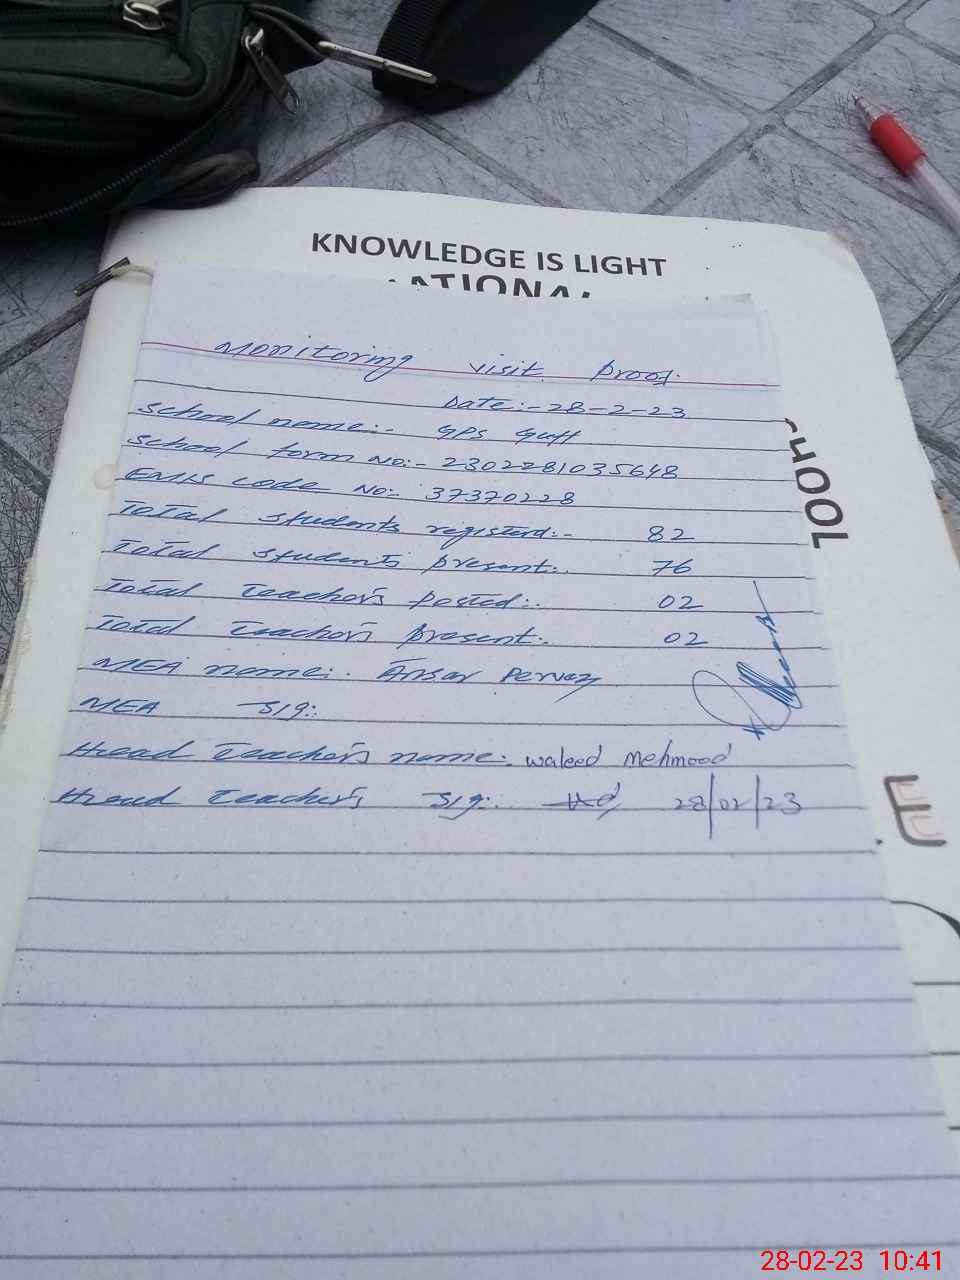 KNOWLEDGE IS LIGHT
Monitoring visit proof.
Date:- 28-2-23
School name:- GPS Guff
School form No:- 2302281035648
EMIS code No:- 37370228
Total students registerd:- 82
Total students present:- 76
Total Teacher's posted:- 02
Total Teacher's present:- 02
MEA name:- Ansar Pervez
MEA Sig:
Head Teacher's name:- waleed Mehmood
Head Teacher's Sig:- 28/02/23
28-02-23 10:41